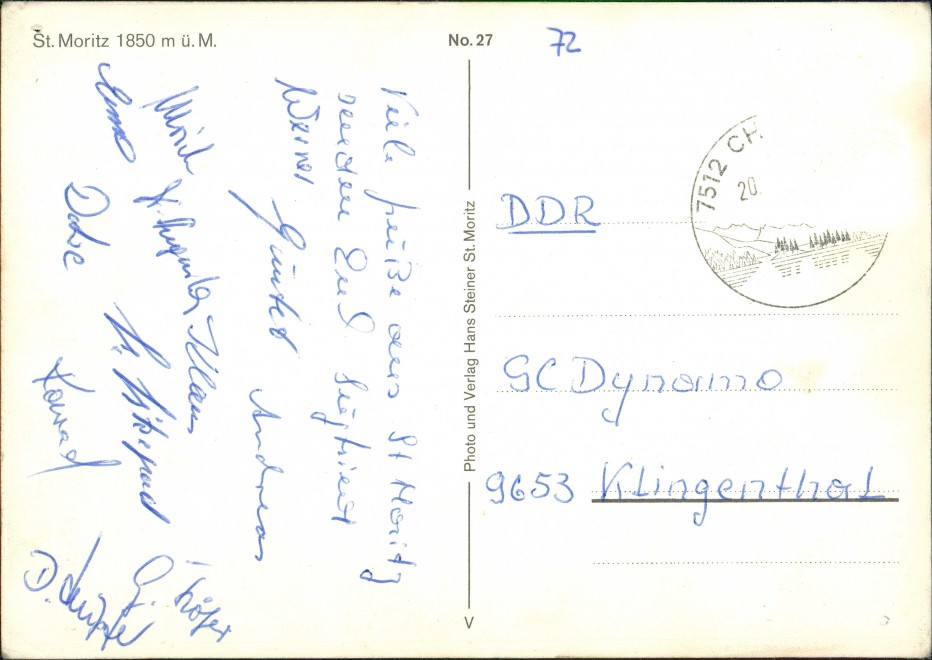 St. Moritz 1850 m ü. M.
No. 27
72
Viele Grüße aus St Moritz
senden Euch Siegfried
Werner Günter Andreas
Ulrich
Klaus
Konrad
D.
Photo und Verlag Hans Steiner St. Moritz
V
7512 CH
20.
DDR
SC Dynamo
9653 Klingenthal